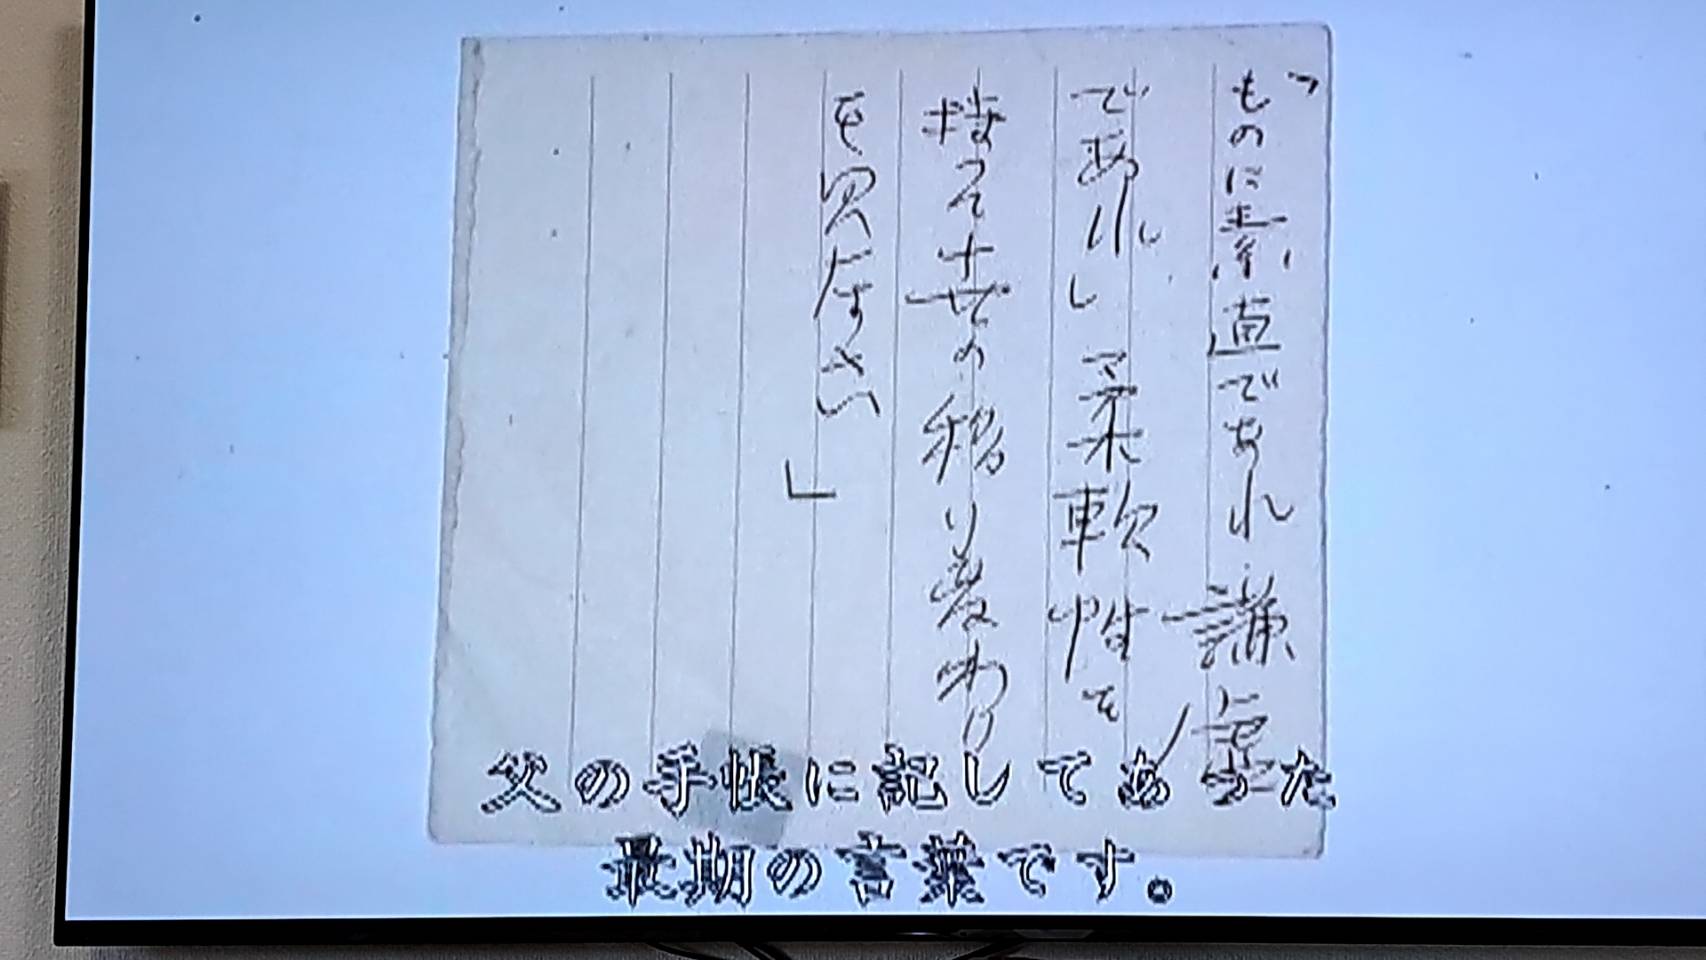 「ものに素直であれ 謙虚
であれ 柔軟性を
持って世の移り変わり
を見なさい」
父の手帳に記してあった
最期の言葉です。